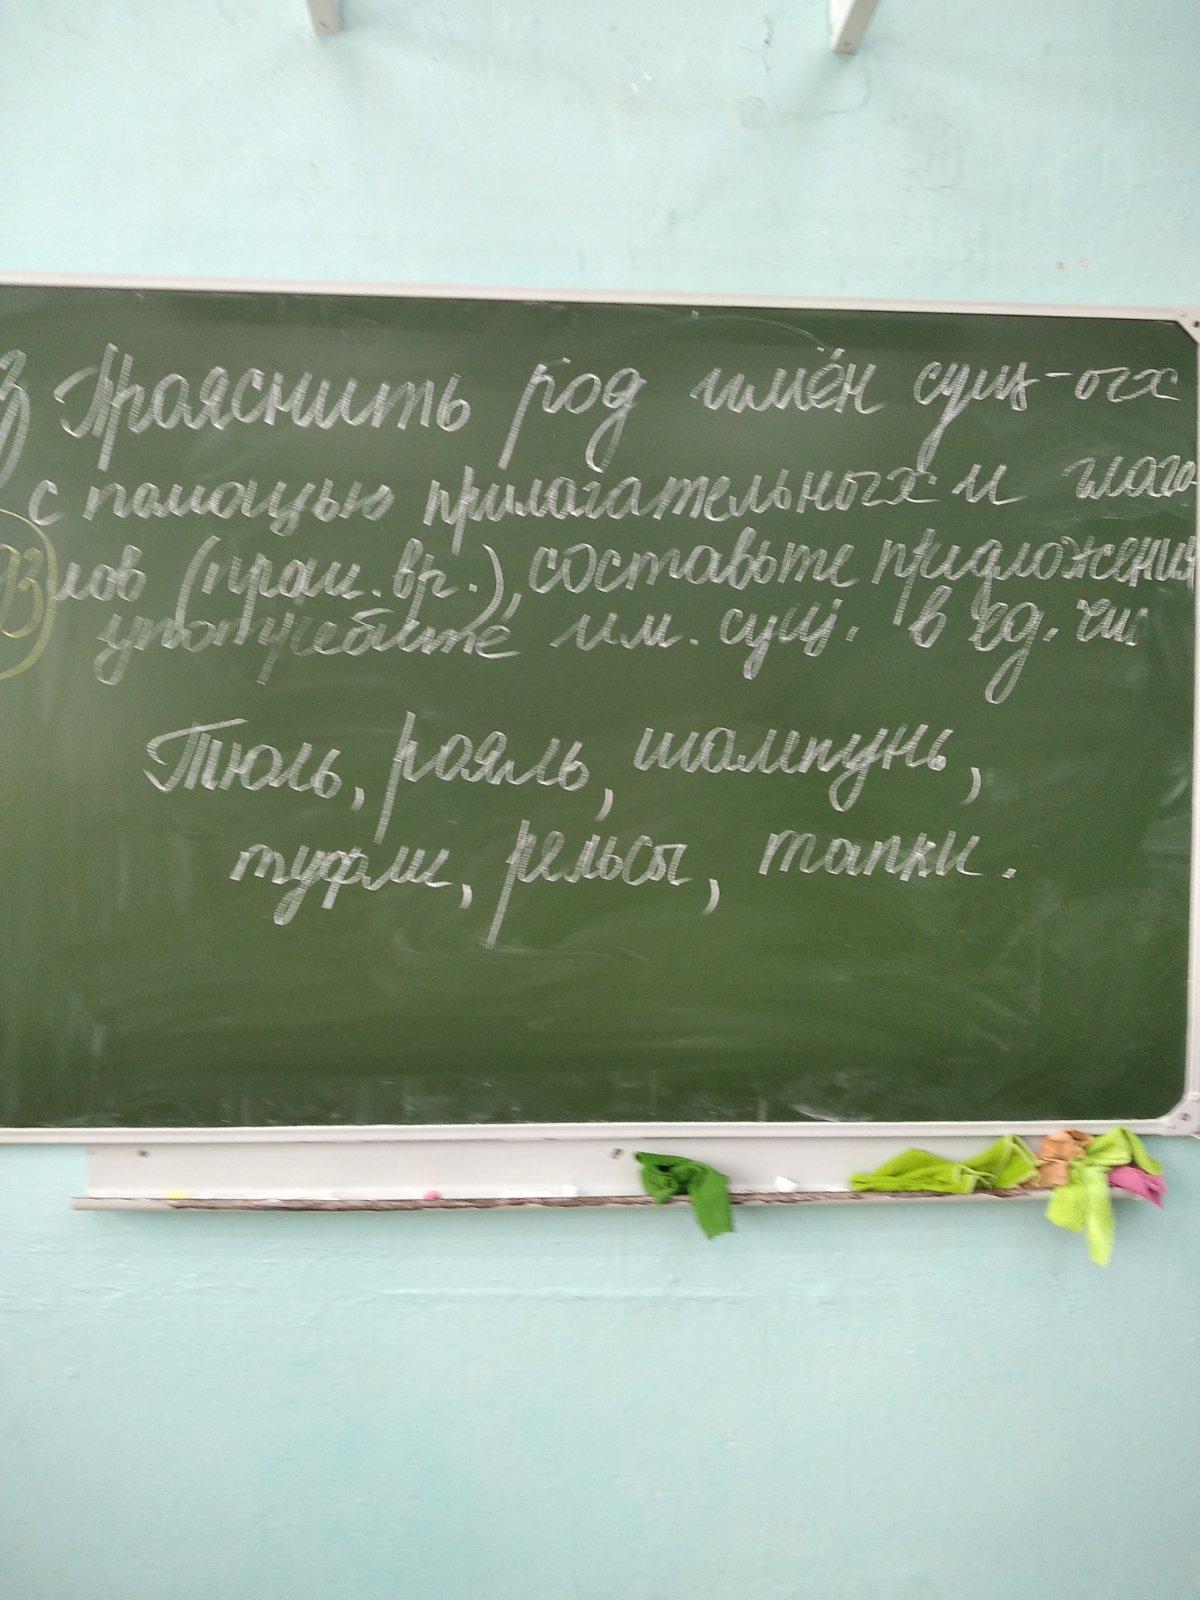 Прояснить род имён сущ-ых
с помощью прилагательных и глаго-
лов (прош. вр.), составьте предложения
употребите им. сущ. в ед. чис
Тюль, рояль, шампунь,
туфли, рельсы, тапки.